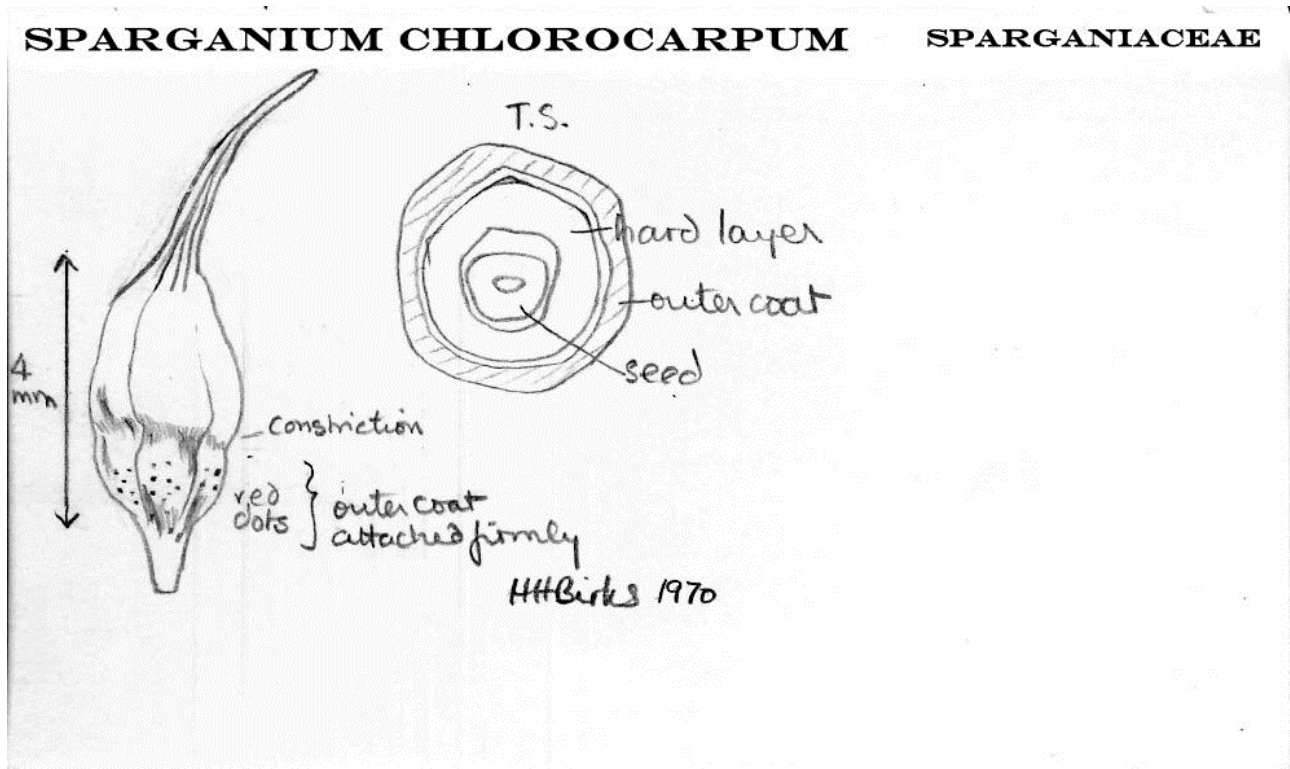 SPARGANIUM CHLOROCARPUM SPARGANIACEAE
T.S.
hard layer
outer coat
seed
4
mm
constriction
red
dots
outer coat
attached firmly
HHBirks 1970